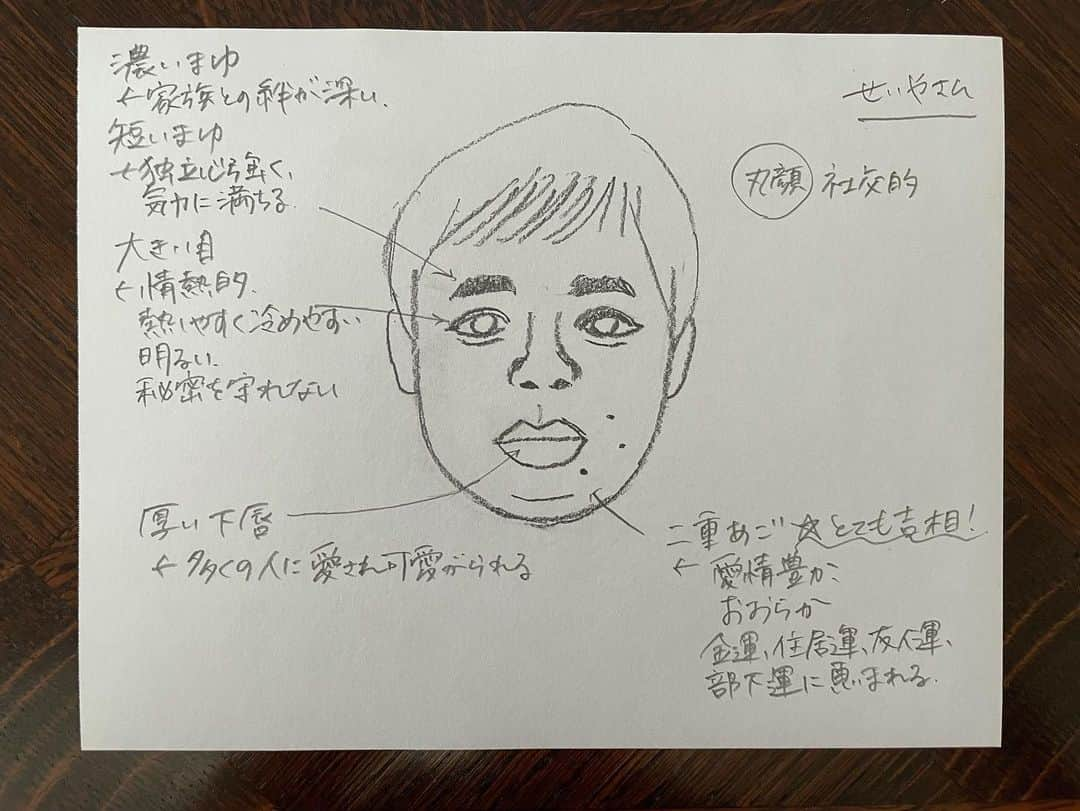 濃いまゆ
←家族との絆が深い.
短いまゆ
←独立心強く、
気力に満ちる.
大きい目
←情熱的.
熱しやすく冷めやすい
明るい.
秘密を守れない
せいやさん
丸顔 社交的
厚い下唇
←多くの人に愛され可愛がられる
二重あご ☆とても吉相!
←愛情豊か、
おおらか
金運、住居運、友人運、
部下運に恵まれる.